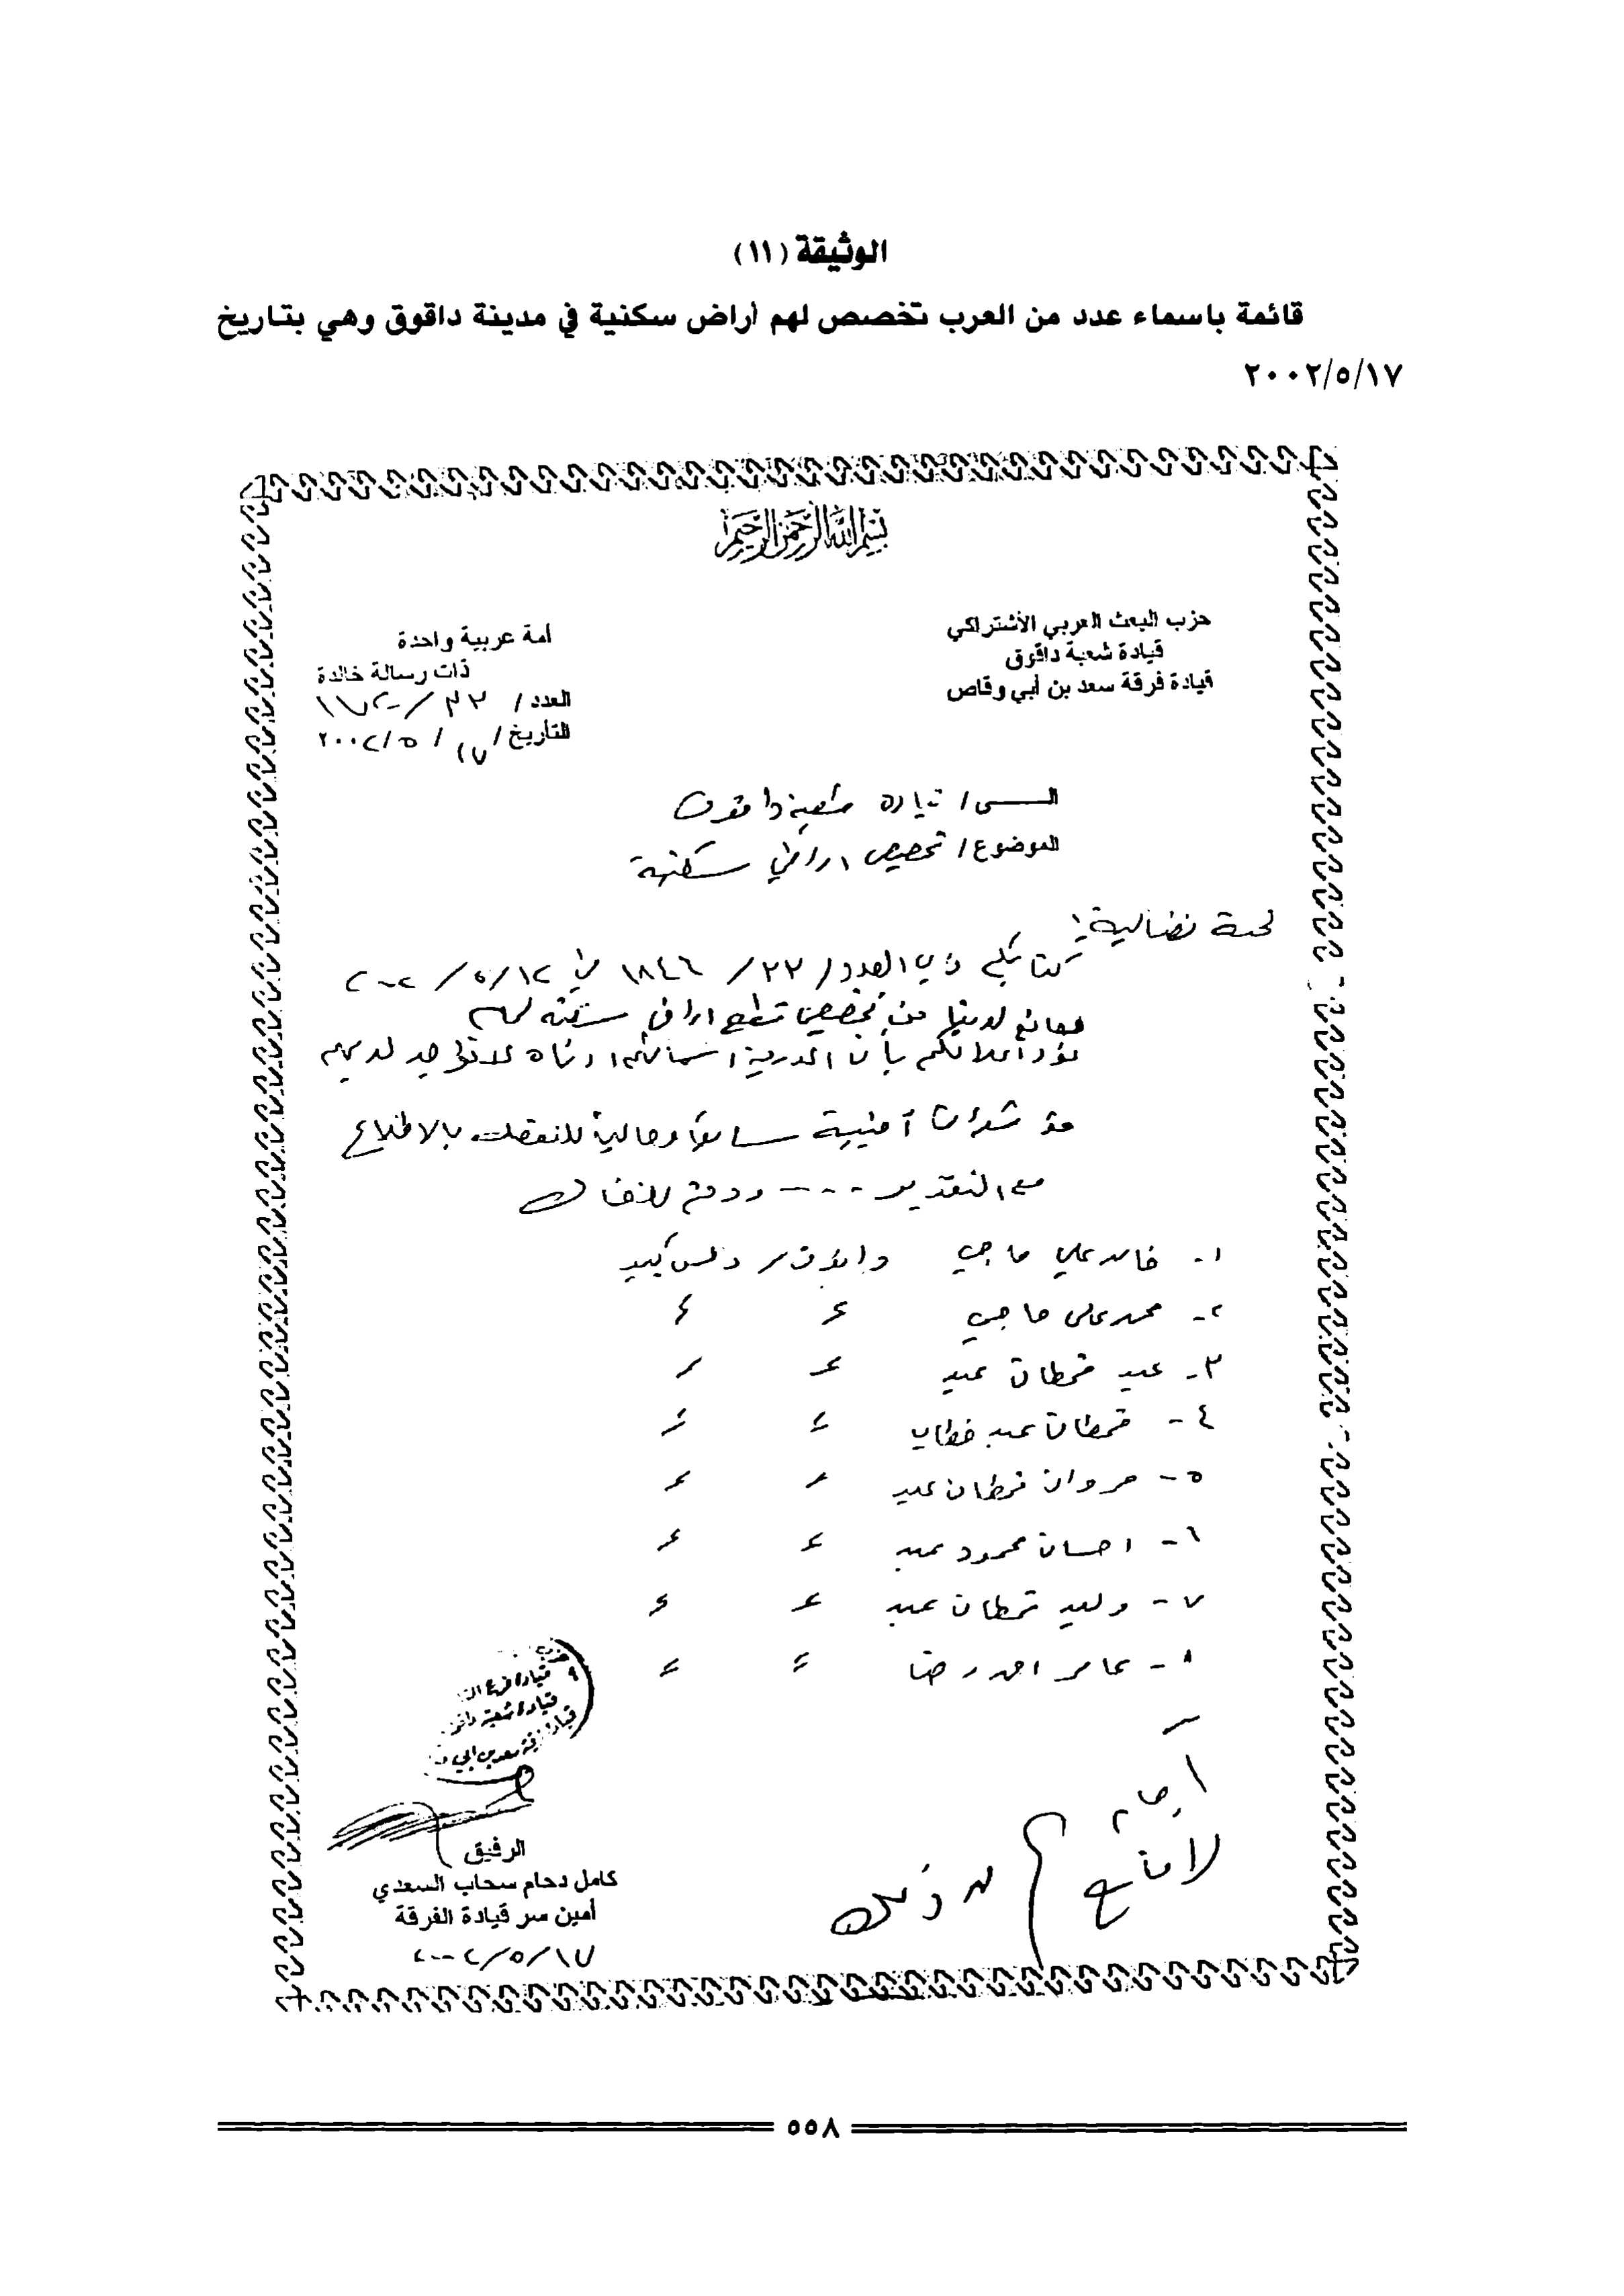 الوثيقة (١١)
قائمة باسماء عدد من العرب تخصص لهم أراض سكنية في مدينة داقوق وهي بتاريخ
٢٠٠٢/٥/١٧
بسم الله الرحمن الرحيم
حزب البعث العربي الأشتراكي
قيادة شعبة داقوق
قيادة فرقة سعد بن أبي وقاص
أمة عربية واحدة
ذات رسالة خالدة
العدد /
التأريخ / ١٧ / ٥ / ٢٠٠٢
الــى / قيادة شعبة داقوق
الموضوع / تخصيص اراضي سكنية
تحية نضالية :
كتابكم ذي العدد / ٢٢ / ١٨٤٦ في ١٢ / ٥ / ٢٠٠٢
لا مانع لدينا من تخصيص قطع اراضي سكنية لهم
نود اعلامكم بأن المدرجة اسمائهم ادناه لا توجد لديهم
مؤشرات أمنية سابقاً وحالياً للتفضل بالاطلاع
مع التقدير - - - ودمتم للنضال
١- خالد علي حاجي
٢- محمد علي حاجي
٣- عبد قحطان عبد
٤- قحطان عبد
٥- مروان قحطان عبد
٦- احسان محمود عبد
٧- وليد قحطان عبد
٨- عامر احمد رضا
قيادة فرع
قيادة شعبة
قيادة فرقة سعد بن ابي
لا مانع
لد ذلك
الرفيق
كامل دحام سحاب السعدي
أمين سر قيادة الفرقة
١٧ / ٥ / ٢٠٠٢
٥٥٨